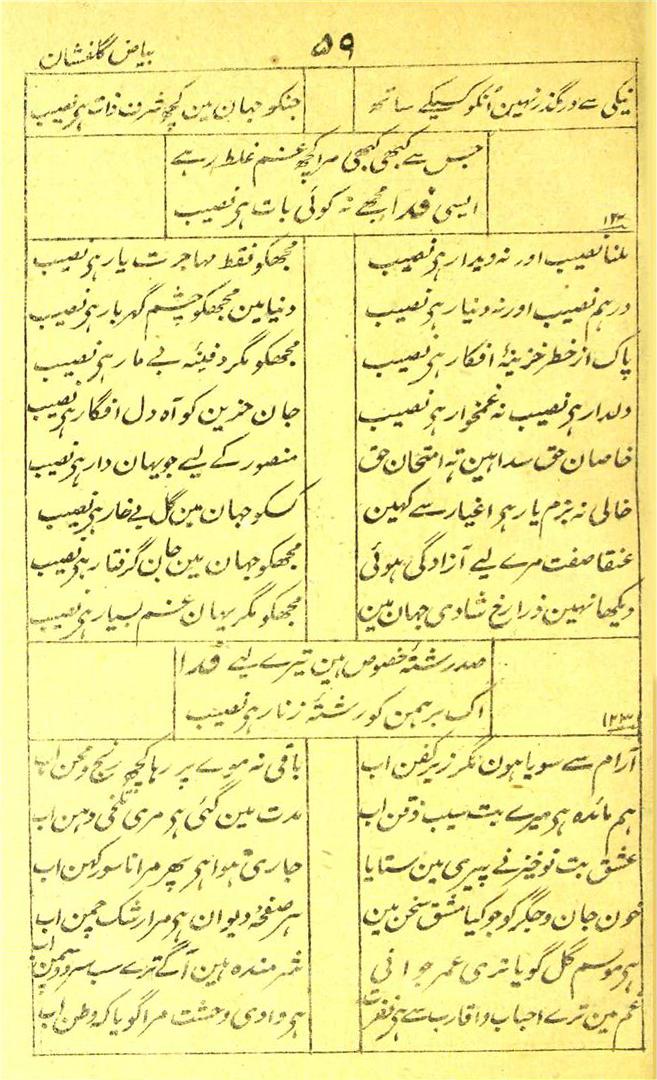 بیاض گلفشان
۵۹
نیکی سے درگذر نہین اُنکو کسیکے ساتھ جنکو جہان مین کچھ شرف ذات ہر نصیب
جس سے کبھی کبھی مرا کچھ غم غلط رہے
ایسی فدا مجھے نہ کوئی بات ہر نصیب
ملنا نصیب اور نہ دیدار ہر نصیب مجھکو فقط مہاجرت یار ہر نصیب
درہم نصیب اور نہ دنیار ہر نصیب دنیا مین مجھکو چشم گہربار ہر نصیب
پاک از خطر خزینۂ افکار ہر نصیب مجھکو مگر دفینۂ بے مار ہر نصیب
دلدار ہر نصیب نہ غمخوار ہر نصیب جان حزین کو آہ دل افگار ہر نصیب
خاصان حق سدا ہین تہ امتحان حق منصور کے لیے جو یہان دار ہر نصیب
خالی نہ بزم یار ہر اغیار سے کہین کسکو جہان مین گل بے خار ہر نصیب
عنقا صفت مرے لیے آزادگی ہوئی مجھکو جہان مین جان گرفتار ہر نصیب
دیکھا نہین ذرا رخ شادی جہان مین مجھکو مگر یہان غم بسیار ہر نصیب
صد رشتۂ خصوص ہین تیرے لیے فدا
اک برہمن کو رشتۂ زنار ہر نصیب
آرام سے سویا ہون مگر زیر کفن اب باقی نہ موے پر رہا کچھ رنج و محن اب
ہم مائدہ ہر میرے بت سیب ذقن اب مدت مین گئی ہر مری تلخی دہن اب
عشق بت نوخیز نے پیری مین ستایا جاری ہوا ہر پھر مرا ناسور کہن اب
خون جان و جگر گو جو کیا مشق سخن مین ہر صفحۂ دیوان ہر مرا رشک چمن اب
ہر موسم گل گویا تری عمر جوانی شرمندہ ہین آگے ترے سب سرو و سمن اب
غم مین ترے احباب و اقارب سے ہر نفرت ہر وادی وحشت مرا گویا کہ وطن اب